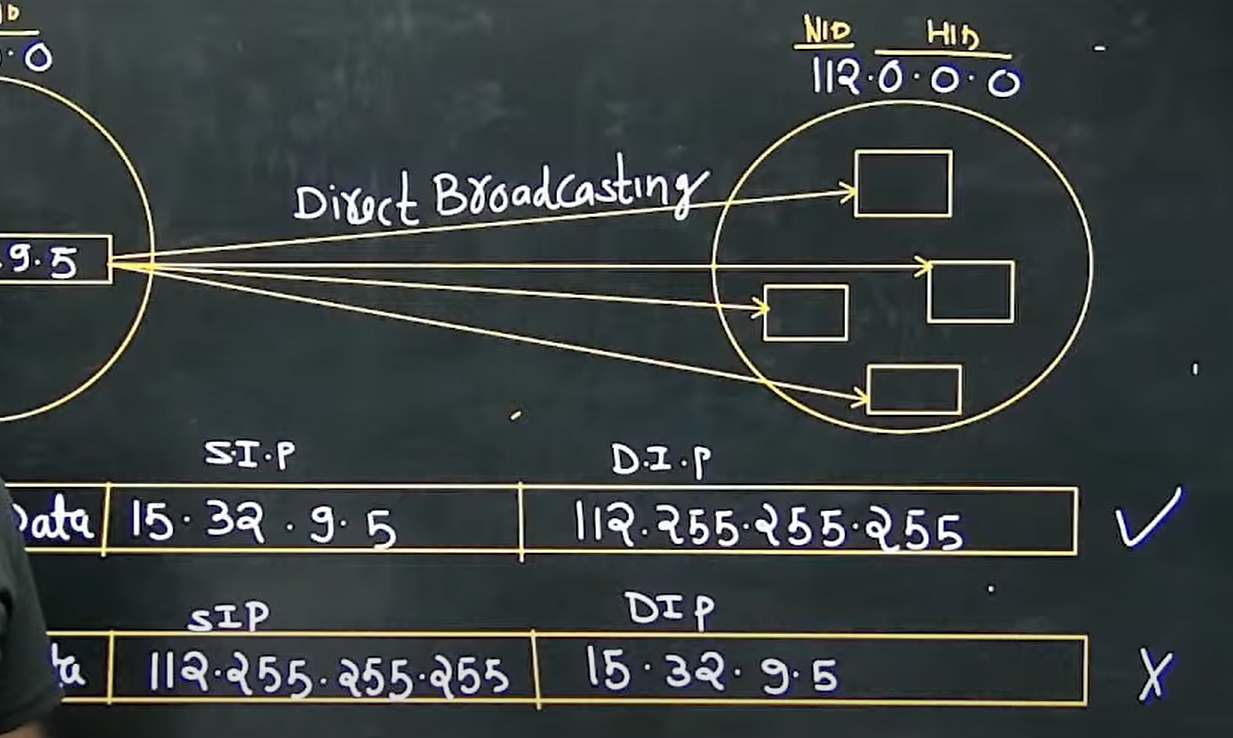 NID HID
.0 112.0.0.0
Direct Broadcasting
.9.5
S.I.P D.I.P
Data 15.32.9.5 112.255.255.255 ✓
SIP DIP
ta 112.255.255.255 15.32.9.5 X